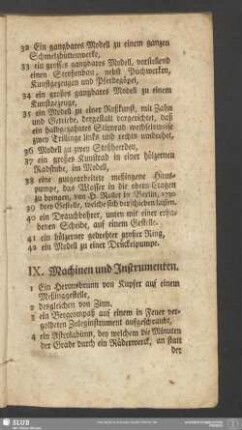 32 Ein gangbares Modell zu einem ganzen
Schmelzhüttenwerke,
33 ein großes gangbares Modell, vorstellend
einen Strossenbau, nebst Pochwerken,
Kunstgezeugen und Pferdegöpel,
34 ein großes gangbares Modell zu einem
Kunstgezeuge,
35 ein Modell zu einer Roßkunst, mit Zahn
und Getriebe, dergestalt vorgerichtet, daß
ein halbgezahntes Stirnrad wechselsweise
zwey Trillinge links und rechts umdrehet,
36 Modell zu zwey Stoßherden,
37 ein großes Kunstrad in einer hölzernen
Radstube, im Modell,
38 eine gutgearbeitete meßingene
pumpe, das Wasser in die obern Etagen
zu bringen, von H. in Berlin, 1790
39 dem Gestelle, welche sich verschieben lassen.
40 ein Drauchbohrer, unten mit einer
benen Scheide, auf einem Gestelle,
41 ein hölzerner gedrehter großer Ring,
42 ein Modell zu einer Druckelpumpe.
IX. Machinen und Instrumenten.
1 Ein Heronsbrunn von Kupfer auf einem
Meßinggestelle,
2 dergleichen von Zinn,
3 ein Bergcompaß auf einem in Feuer ver-
goldeten Zuleginstrument aufgeschraubt,
4 ein Astrolabium, bey welchem die Minuten
der Grade durch ein Räderwerck, an statt
der
SLUB